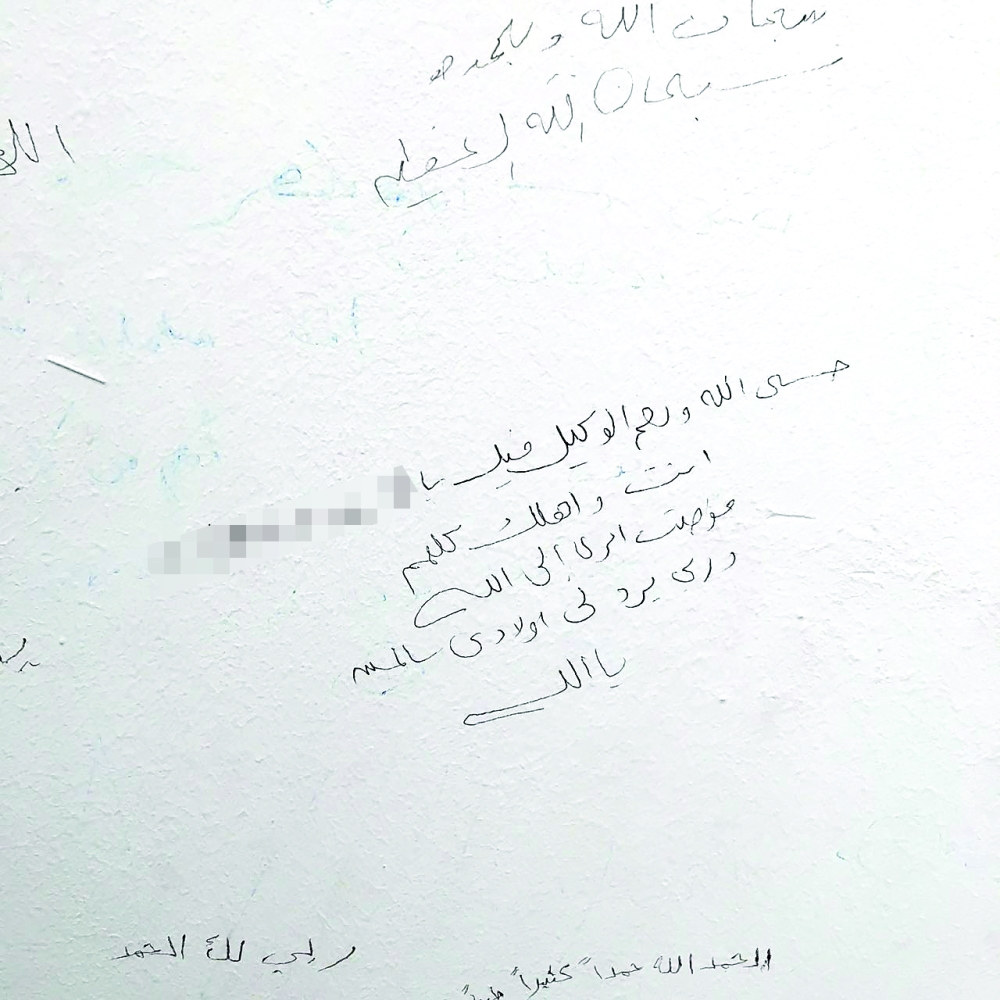 سبحان الله وبحمده
سبحان الله العظيم
حسبي الله ونعم الوكيل فيك يا
انت واهلك كلهم
فوضت امري إلى الله
وربي يرد لي اولادي سالمين
يا الله
ربي لك الحمد
الحمد الله حمداً كثيراً